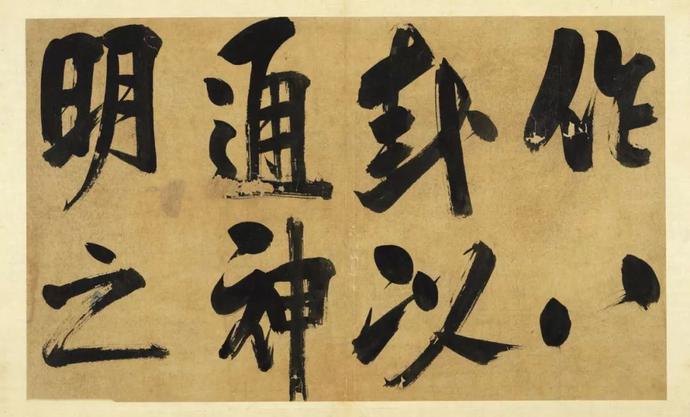 作八
卦以
通神
明之